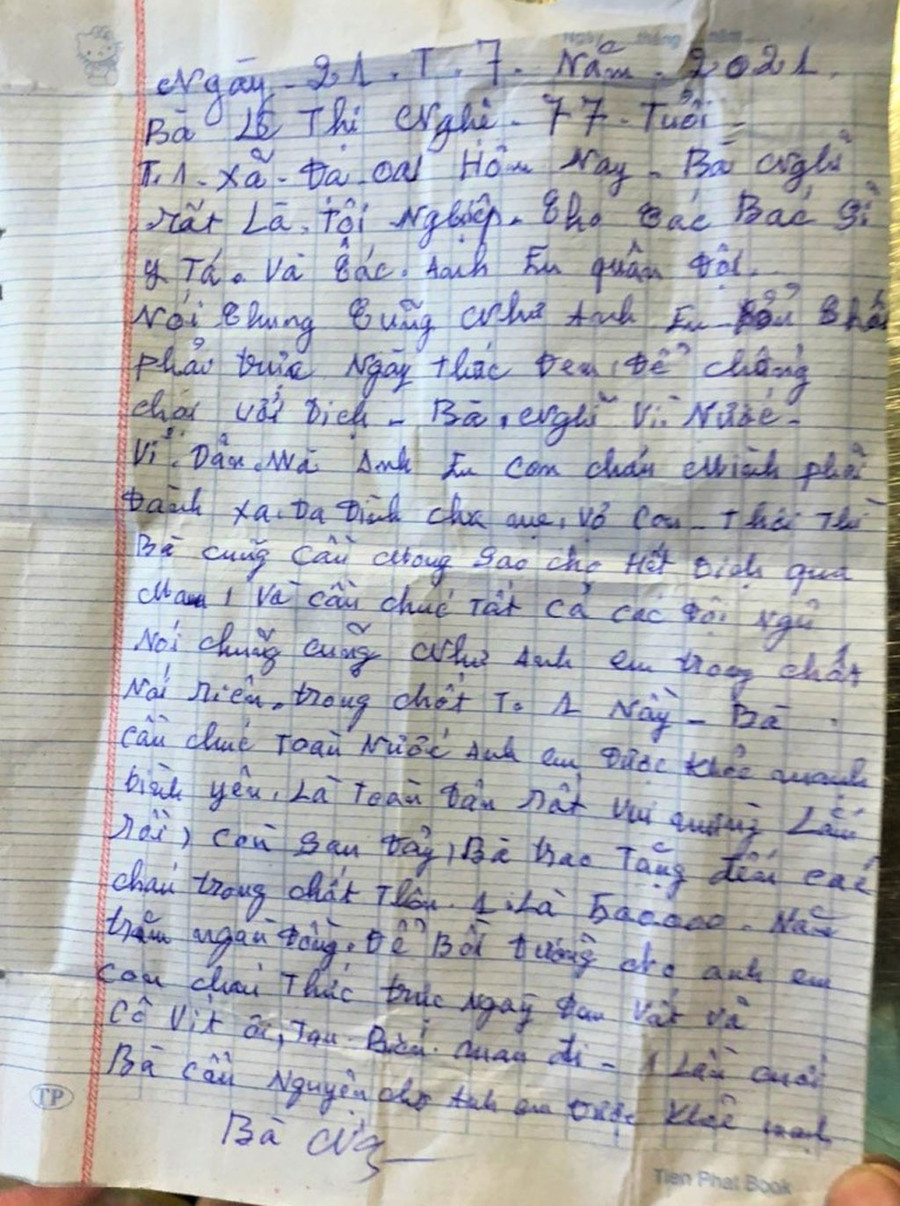 Ngày tháng năm
Ngày - 21. T. 7. Năm - 2021.
Bà Lê Thị Nghê - 77 - Tuổi -
T. 1. xã - Đạ oai Hôm Nay - Bà Nghĩ
rất Là. tội Nghiệp. Cho Các Bác Sĩ
y Tá. Và Các. Anh Em quân Đội.
Nói Chung Cũng Như Anh Em
phải trực Ngày thức Đem, Để chống
chọi với Dịch - Bà, Nghĩ Vì Nước -
Vì. Dân. Mà Anh Em Con cháu Mình phải
Đành xa. Da Đình cha mẹ, Vợ Con - Thôi Thì
Bà cũng Cầu Mong Sao cho Hết Dịch qua
Mau, Và cầu chúc Tất cả các Đội Ngũ
Nói chũng cũng Như Anh em trong chốt
Nói riên. trong chốt T. 1 Nầy - Bà
cầu chúc Toàn Nước Anh em Được khỏe mạnh
bình yên, Là Toàn Dân rất vui mừng Lắm
rồi, Còn Sau Đây, Bà trao Tặng đến các
cháu trong chốt Thôn. 1. Là 500000 - Năm
trăm ngàn Đồng. Để Bồi Dưỡng cho anh em
con cháu Thức trực Ngày Đem Vất Vả
Cô Vít ơi, Tan Biến. mau đi - 1 Lần cuối
Bà cầu Nguyện cho Anh em Được Khỏe mạnh
Bà
TP
Tien Phat Book